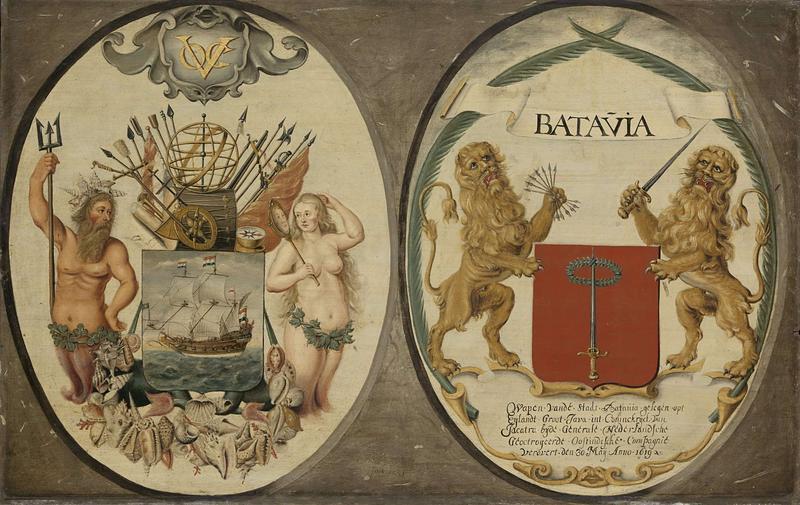 VOC
BATAVIA
Wapen Vande Stadt Batavia gelegen opt
Eylandt Groot Java int Coninckryck Van
Jacatra byde Generale Nederlandsche
Geoctroyeerde Oostindische Compagnie
Verovert den 30 May Anno 1619